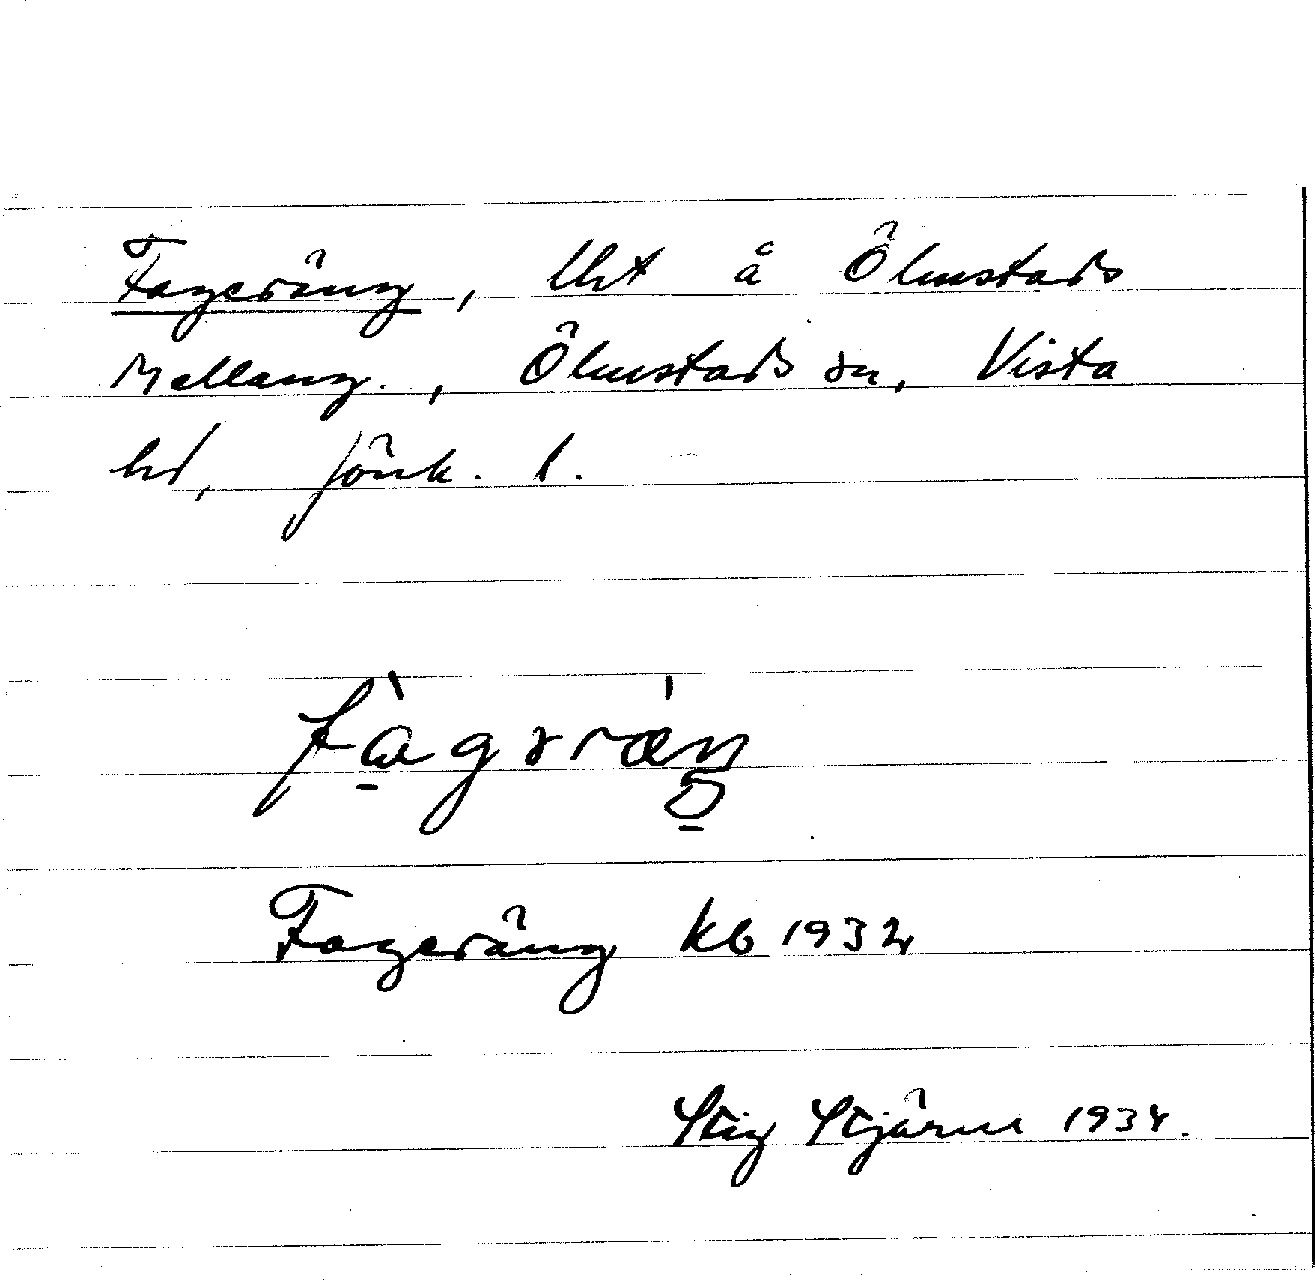 Fageräng, lht å Ölmstads
Mellang., Ölmstads sn, Vista
hd, Jönk. l.
Fageräng kb 1932
Stig Stjärne 1934.